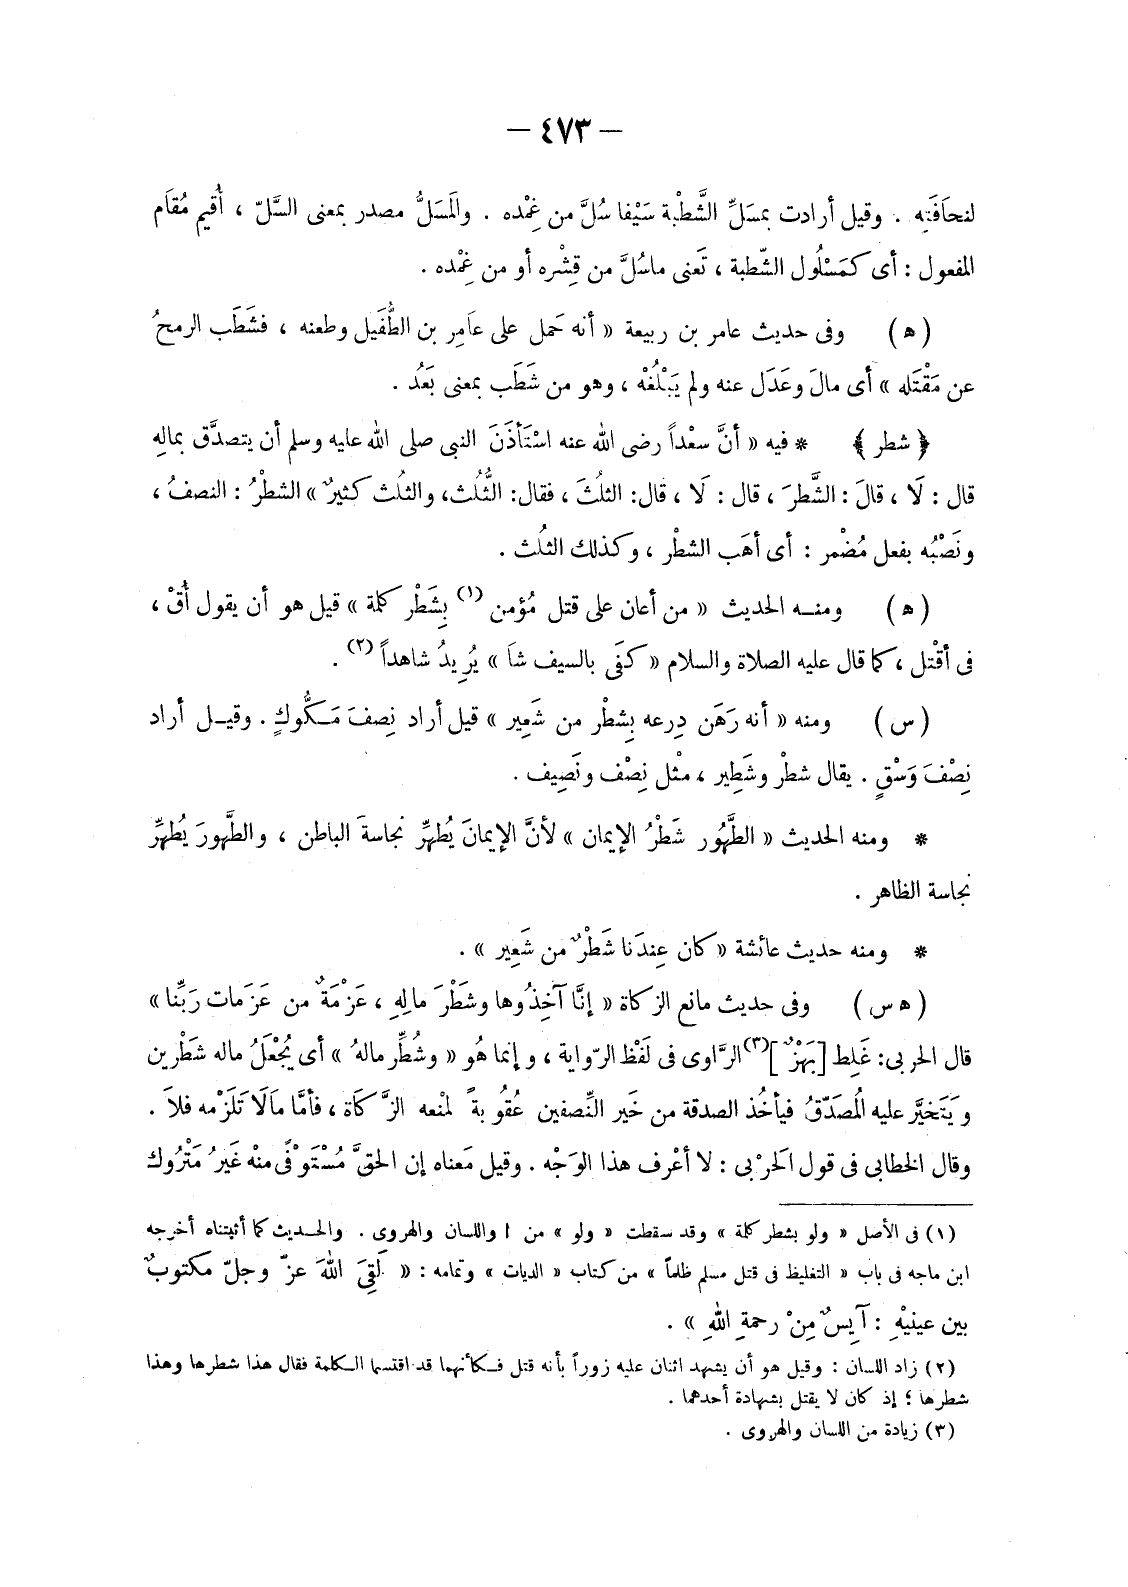 — ٤٧٣ —
لنحَافَتِه . وقيل أرادت بمسَلِّ الشَّطْبة سَيْفا سُلَّ من غِمْده . والَمسَلُّ مصدر بمعنى السَّلّ ، أُقيم مُقاَم
المفعول : أى كَمَسْلُول الشّطبة ، تَعنى ماسُلَّ من قِشْره أو من غِمْده .
( ﻫ ) وفى حديث عامر بن ربيعة « أنه حَمل على عاَمِر بن الطُّفَيل وطعنه ، فشَطَب الرمحُ
عن مَقْتَله » أى مالَ وعَدَل عنه ولم يَبْلُغْه ، وهو من شَطَب بمعنى بَعُد .
﴿ شطر ﴾ * فيه « أنَّ سعْداً رضى الله عنه اسْتَأذَنَ النبى صلى الله عليه وسلم أن يتصدَّق بمالِهِ
قال : لَا ، قالَ : الشَّطرَ ، قال : لَا ، قال: الثلُثَ ، فقال: الثُّلُث، والثلُث كثيرٌ » الشطْرُ : النصفُ ،
ونَصْبُه بفعل مُضْمر : أى أهَب الشطْر ، وكذلك الثلُث .
( ﻫ ) ومنـه الحديث « من أعان على قتل مُؤمن (١) بِشَطْر كلمة » قيل هو أن يقول أُقْ ،
فى أقْتل ، كما قال عليه الصلاة والسلام « كفَى بالسيف شاَ » يُرِيدُ شاهداً (٢) .
( س ) ومنه « أنه رَهَن دِرعه بِشطْر من شَعِير » قيل أراد نِصفَ مَكُّوكٍ . وقيـل أراد
نِصْفَ وَسْقٍ . يقال شطْر وشَطِير ، مثْل نِصْف ونَصِيف .
* ومنه الحديث « الطَّهُور شَطْرُ الإيمان » لأنَّ الإيمانَ يُطهرِّ نجاسةَ الباطن ، والطَّهورَ يُطهرِّ
نجاسة الظاهر .
* ومنه حديث عائشة « كان عِندَنا شَطْرٌ من شَعِير » .
( ﻫ س ) وفى حديث مانع الزكاة « إنَّا آخِذُوها وشَطْرَ مالِهِ ، عَزْمَةٌ من عَزَمات رَبِّنا »
قال الحربى : غَلِط [بَهْزٌ ] (٣) الرَّاوى فى لَفْظ الرّواية ، وإنما هُو « وشُطِّر مالهُ » أى يُجْعَلُ ماله شَطْرين
ويَتَخيَّر عليه الُمصَدّقُ فيأخُذ الصدقة من خَير النِّصفين عُقُوبةً لمنْعه الزَّكَاة ، فأمَّا مَالَا تَلَزْمه فلاَ .
وقال الخطابى فى قول الَحرْبى : لا أعْرف هذا الوَجْه . وقيل مَعناه إن الحقَّ مُسْتَوْفًى منْه غَيرُ مَتْرُوك
(١) فى الأصل « ولو بشطر كلمة » وقد سقطت « ولو » من ا واللسان والهروى . والحـديث كما أثبتناه أخرجه
ابن ماجه فى باب « التغليظ فى قتل مسلم ظلماً » من كتاب « الديات » وتمامه : « لَقِىَ اللهَ عزّ وجلّ مكتوبٌ
بين عينيْهِ : آيِسٌ مِنْ رحمةِ اللهِ » .
(٢) زاد اللسان : وقيل هو أن يشهد اثنان عليه زوراً بأنه قتل فـكأنهما قد اقتسما الـكلمة فقال هذا شطرها وهذا
شطرها ؛ إذ كان لا يقتل بشهادة أحدهما .
(٣) زيادة من اللسان والهروى .